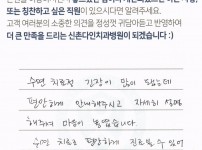 또는 칭찬하고 싶은 직원이 있으시다면 알려주세요.
고객 여러분의 소중한 의견을 정성껏 귀담아듣고 반영하여
더 큰 만족을 드리는 신촌다인치과병원이 되겠습니다 :)
수면 치료전 긴장이 많이 됐는데
편안하게 안내해주시고 자세히 설명
해주셔 마음이 놓였습니다
수면 치료로 편안하게 진료볼 수 있어